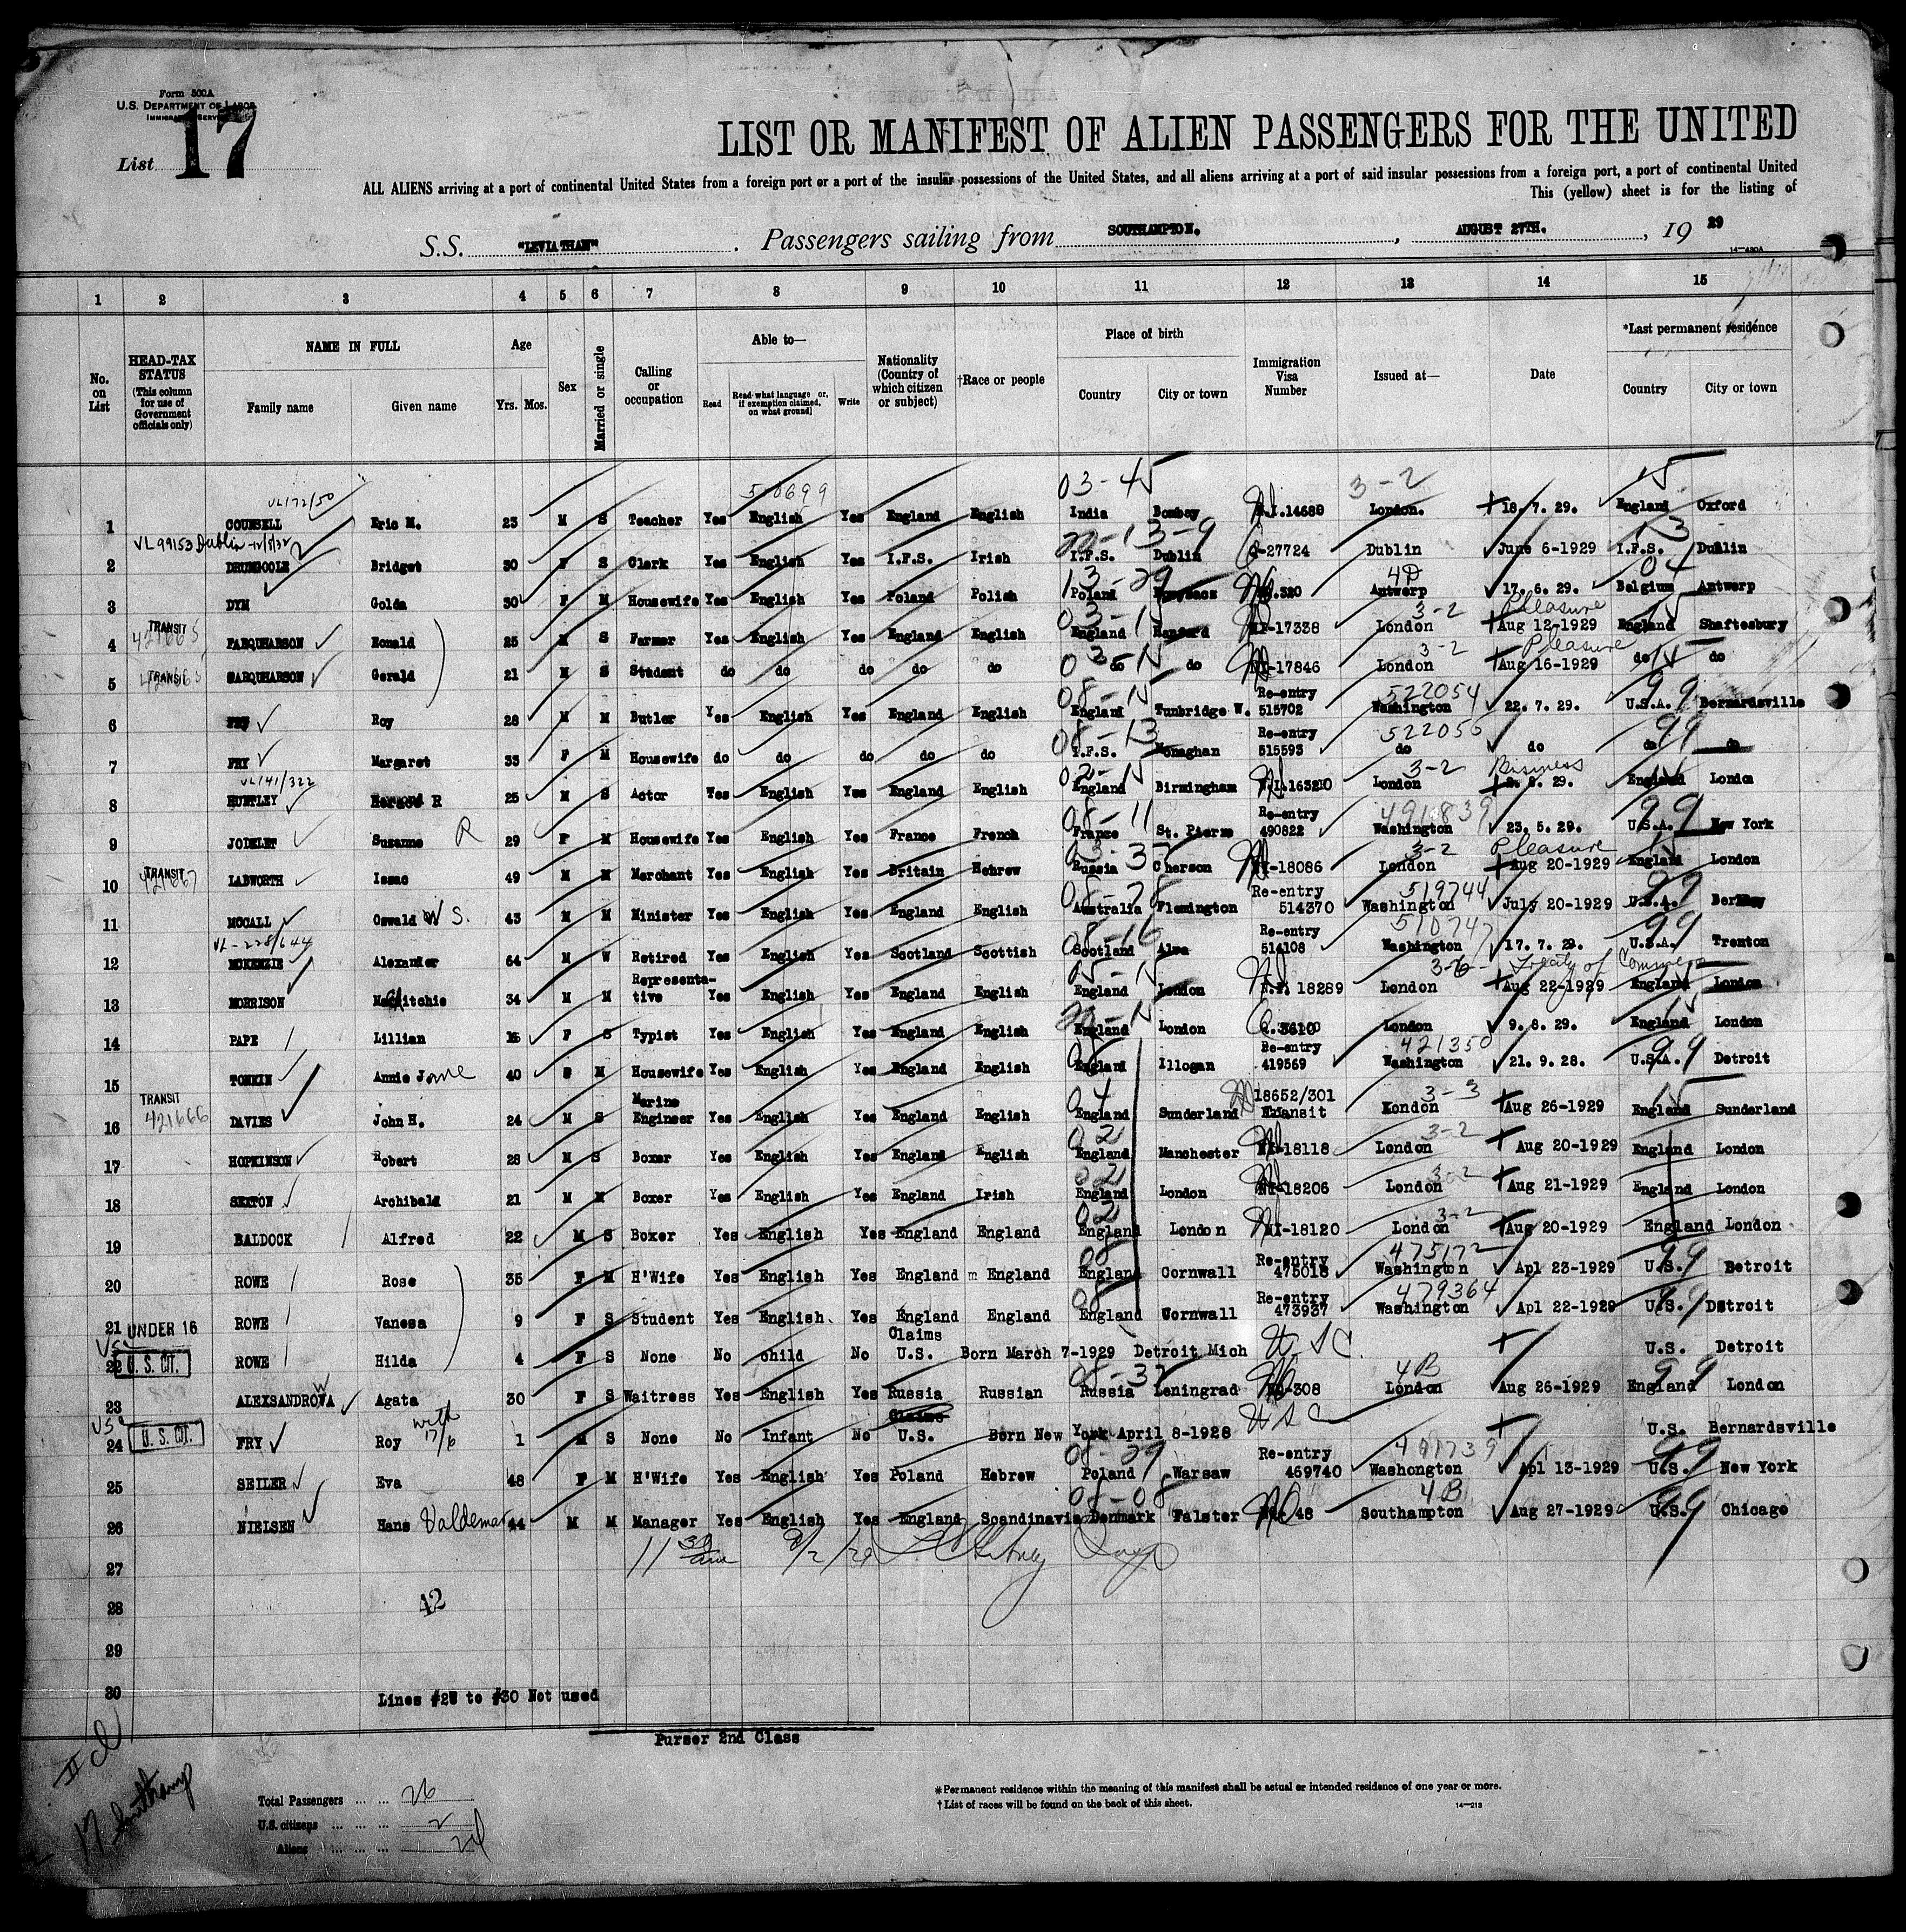 Form 500A
U.S. DEPARTMENT OF LABOR
IMMIGRATION SERVICE
List 17
LIST OR MANIFEST OF ALIEN PASSENGERS FOR THE UNITED
ALL ALIENS arriving at a port of continental United States from a foreign port or a port of the insular possessions of the United States, and all aliens arriving at a port of said insular possessions from a foreign port, a port of continental United
This (yellow) sheet is for the listing of
S.S. "LEVIATHAN" . Passengers sailing from SOUTHAMPTON. , AUGUST 27TH. , 19 29
14—430A
1 2 3 4 5 6 7 8 9 10 11 12 13 14 15
No. on List
HEAD-TAX STATUS (This column for use of Government officials only)
NAME IN FULL
Family name Given name
Age Yrs. Mos.
Sex
Married or single
Calling or occupation
Able to—
Read Read what language or, if exemption claimed, on what ground) Write
Nationality (Country of which citizen or subject)
†Race or people
Place of birth
Country City or town
Immigration Visa Number
Issued at—
Date
*Last permanent residence
Country City or town
VL172/50 510699 03-15 3-2 15
1 COUNSELL Eric M. 23 M S Teacher Yes English Yes England English India Bombay 14680 London. 18. 7. 29. England Oxford
VL99153 Dublin 13-9 13
2 DRUMGOOLE Bridget 30 F S Clerk Yes English Yes I.F.S. Irish I.F.S. Dublin 27724 Dublin June 6-1929 I.F.S. Dublin
13-29 4D 04
3 DYM Golda 30 F M Housewife Yes English Yes Poland Polish Poland 320 Antwerp 17. 6. 29. Belgium Antwerp
TRANSIT 421665 03-15 3-2 Pleasure 15
4 FARQUHARSON Ronald 25 M S Farmer Yes English Yes England English England Hanford NI-17338 London Aug 12-1929 England Shaftesbury
TRANSIT 03-15 3-2 Pleasure 15
5 FARQUHARSON Gerald 21 M S Student do do do do do do do NI-17846 London Aug 16-1929 do do
08-15 Re-entry 522054 99
6 FRY Roy 28 M M Butler Yes English Yes England English England Tunbridge W. 515702 Washington 22. 7. 29. U.S.A. Bernardsville
08-13 Re-entry 522055 99
7 FRY Margaret 33 F M Housewife do do do do do I.F.S. Monaghan 515593 do do do do
VL141/322 02-15 3-2 Business 15
8 HUNTLEY R 25 M S Actor Yes English Yes England English England Birmingham N.I.163210 London 29. England London
08-11 Re-entry 491839 99
9 JODELET Suzanne R 29 F M Housewife Yes English Yes France French France St. Pierre 490822 Washington 23. 5. 29. U.S.A. New York
TRANSIT 421667 03-37 3-2 Pleasure 15
10 LADWORTH Isaac 49 M M Merchant Yes English Yes Britain Hebrew Russia Cherson NI-18086 London Aug 20-1929 England London
08-28 Re-entry 519744 99
11 MCCALL Oswald W S. 43 M M Minister Yes English Yes England English Australia Flemington 514370 Washington July 20-1929 U.S.A.
VL-228/644 08-16 Re-entry 510747 99
12 MCKENZIE Alexander 64 M W Retired Yes English Yes Scotland Scottish Scotland Alva 514108 Washington 17. 7. 29. U.S.A. Trenton
Representa- 05-15 3-6- Treaty of Commerce
13 MORRISON MacRitchie 34 M M tive Yes English Yes England English England London 18289 London Aug 22-1929 England London
14 PAPE Lillian F S Typist Yes English Yes England English England London London 9. 8. 29. England London
Re-entry 421350 99
15 TONKIN Annie Jane 40 M Housewife Yes English Yes England English England Illogan 419569 Washington 21. 9. 28. U.S.A. Detroit
TRANSIT 421666 Marine 04 18652/301 3-3 15
16 DAVIES John H. 24 M S Engineer Yes English Yes England English England Sunderland Transit London Aug 26-1929 England Sunderland
02 3-2
17 HOPKINSON Robert 28 M S Boxer Yes English Yes England English England Manchester NI-18118 London Aug 20-1929 England London
02 3-2
18 SEXTON Archibald 21 M M Boxer Yes English Yes England Irish England London NI-18206 London Aug 21-1929 England London
02 3-2
19 BALDOCK Alfred 22 M S Boxer Yes English Yes England England England London NI-18120 London Aug 20-1929 England London
08 Re-entry 475172 99
20 ROWE Rose 35 F M H'Wife Yes English Yes England m England England Cornwall 475018 Washington Apl 23-1929 U.S. Detroit
08 Re-entry 479364 99
21 UNDER 16 ROWE Vanesa 9 F S Student Yes English. Yes England England England Cornwall 473937 Washington Apl 22-1929 U.S. Detroit
Claims
22 U. S. CIT. ROWE Hilda 4 F S None No child No U.S. Born March 7-1929 Detroit Mich USC U.S. Detroit
08-37 4B 99
23 ALEXSANDROWA Agata 30 F S Waitress Yes English Yes Russia Russian Russia Leningrad 308 London Aug 26-1929 England London
with 17/6 Claims USC
24 U. S. CIT. FRY Roy 1 M S None No Infant No U.S. Born New York April 8-1928 U.S. Bernardsville
08-29 Re-entry 99
25 SEILER Eva 48 F M H'Wife Yes English Yes Poland Hebrew Poland Warsaw 469740 Washongton Apl 13-1929 U.S. New York
08-08 4B 99
26 NIELSEN Hans Valdemar 44 M M Manager Yes English Yes England Scandinavia Denmark Falster 48 Southampton Aug 27-1929 U.S. Chicago
27 11 30 am 9/2/29
28 42
29
30 Lines to #30 Not used
Purser 2nd Class
II cl
17 Southamp
Total Passengers ... ... 26
U.S. citizens ... ... ... 2
Aliens ... ... ... 24
*Permanent residence within the meaning of this manifest shall be actual or intended residence of one year or more.
†List of races will be found on the back of this sheet.
14—213